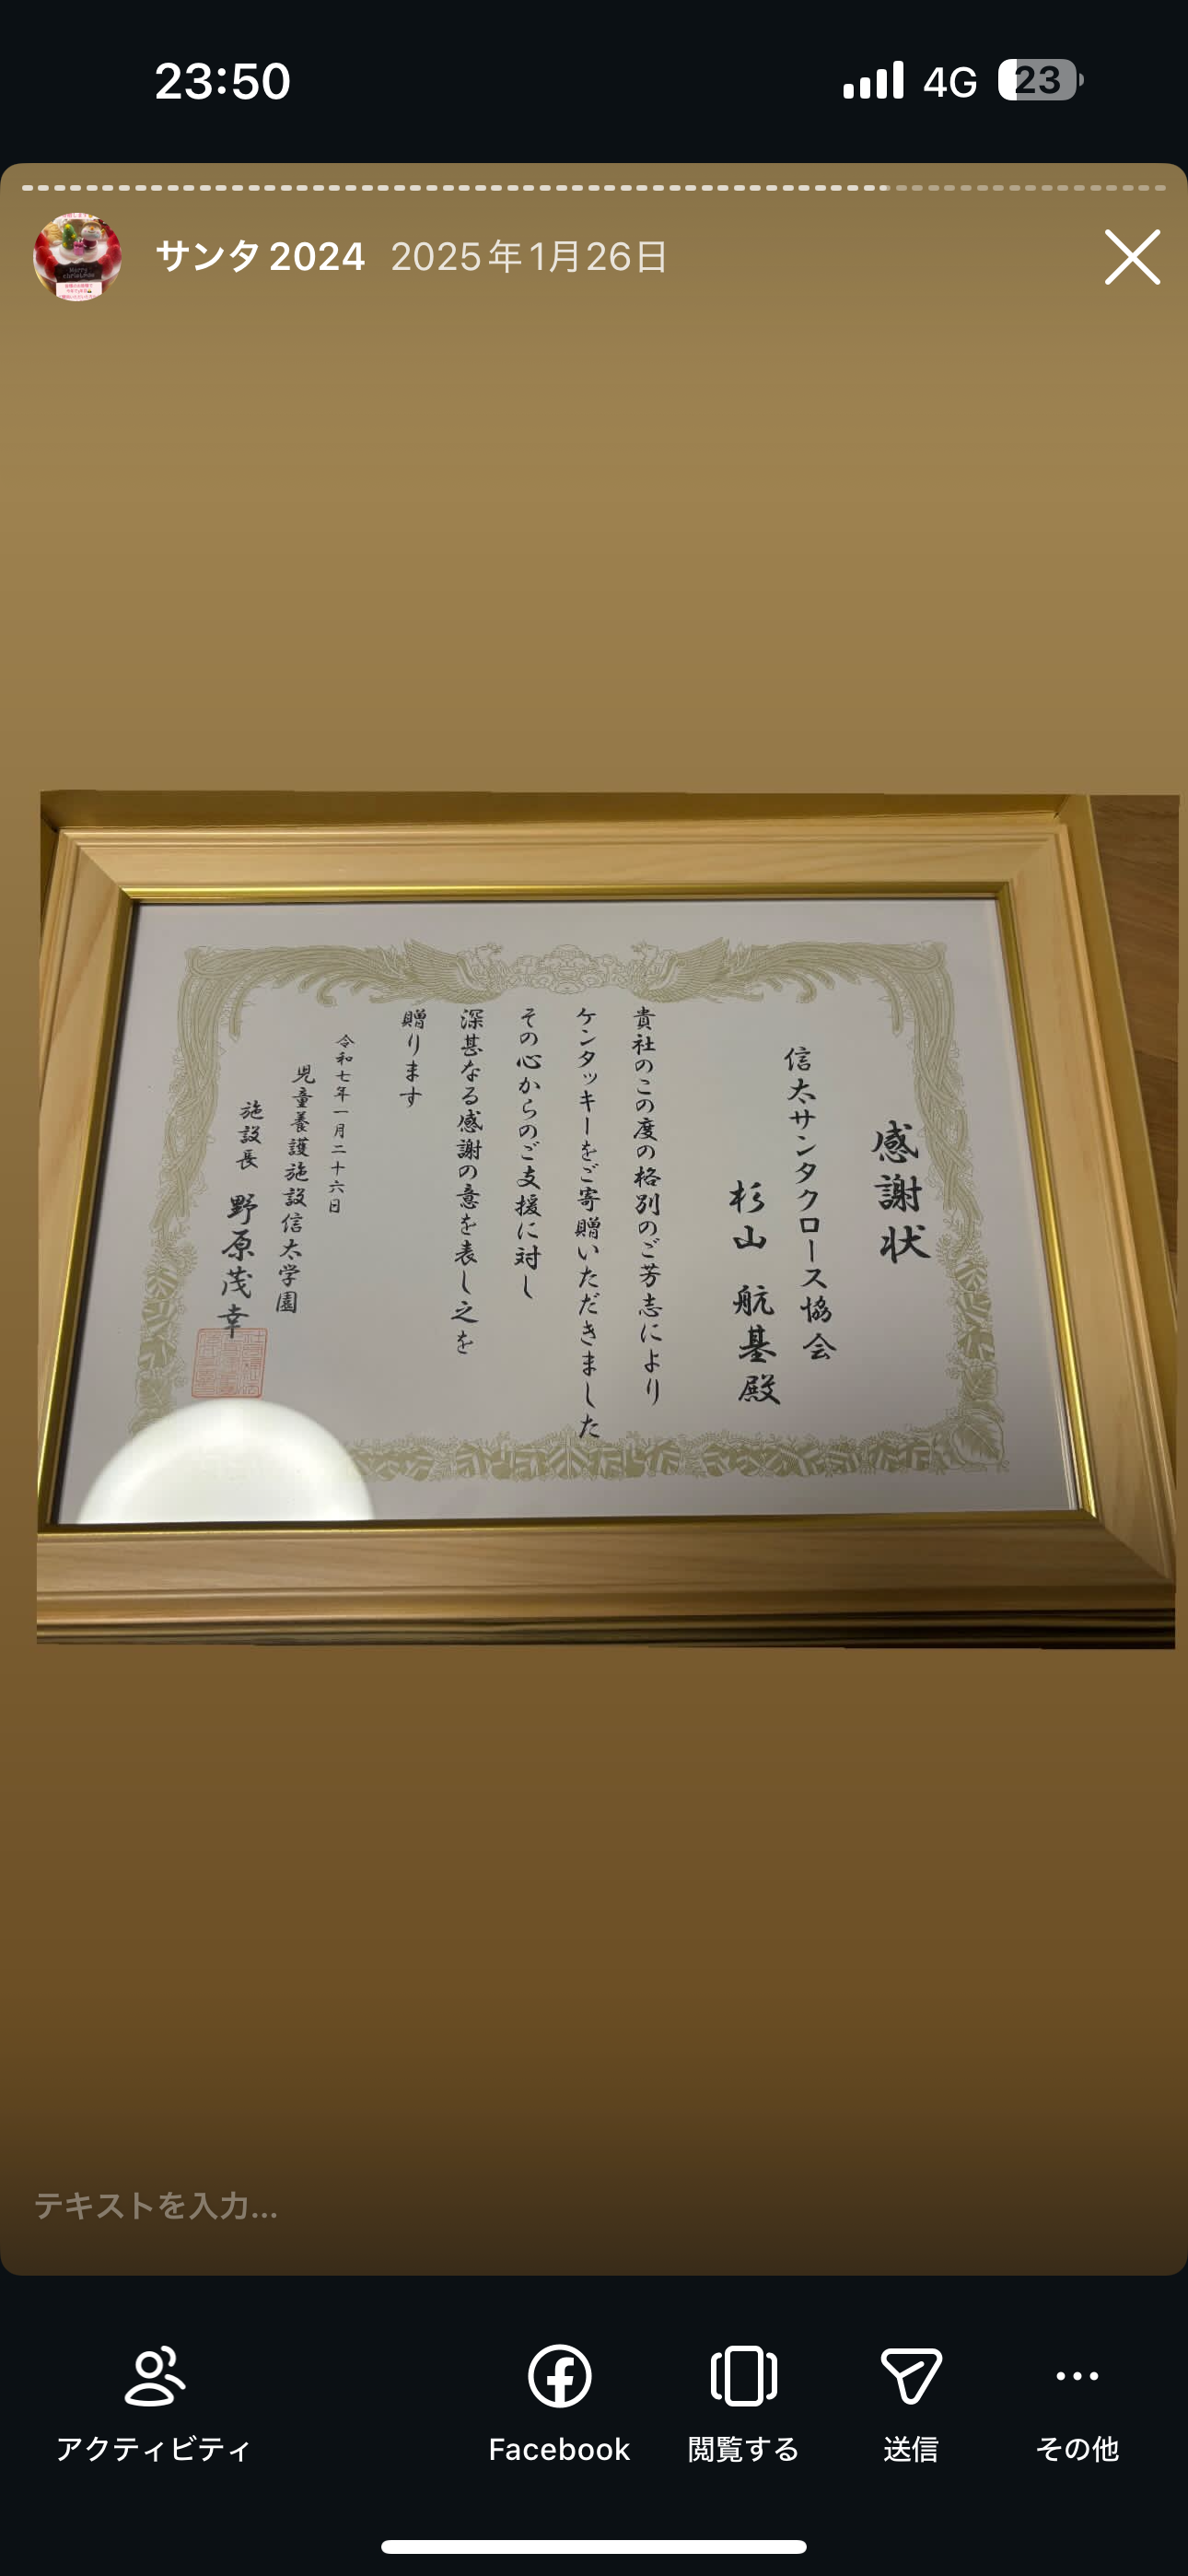 23:50
4G
23
サンタ2024 2025年1月26日
感謝状
信太サンタクロース協会
杉山 航基殿
貴社のこの度の格別のご芳志により
ケンタッキーをご寄贈いただきました
その心からのご支援に対し
深甚なる感謝の意を表し之を
贈ります
令和七年一月二十六日
児童養護施設信太学園
施設長 野原茂幸
テキストを入力...
アクティビティ
Facebook
閲覧する
送信
その他